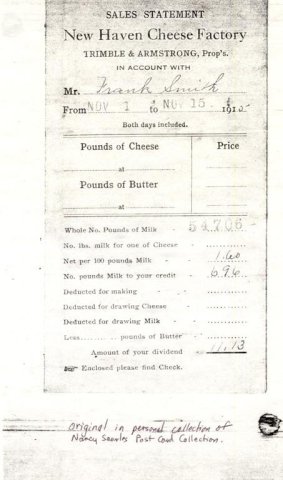 SALES STATEMENT
New Haven Cheese Factory
TRIMBLE & ARMSTRONG, Prop's.
IN ACCOUNT WITH
Mr. Frank Smith
From NOV 1 to NOV 15 1915
Both days included.
Pounds of Cheese Price
at
Pounds of Butter
at
Whole No. Pounds of Milk -
No. lbs. milk for one of Cheese -
Net per 100 pounds Milk - 1.60
No. pounds Milk to your credit - 696
Deducted for making - -
Deducted for drawing Cheese -
Deducted for drawing Milk -
Less.......... pounds of Butter
Amount of your dividend 11.13
Enclosed please find Check.
Original in personal collection of
Nancy Searles Post Card Collection.